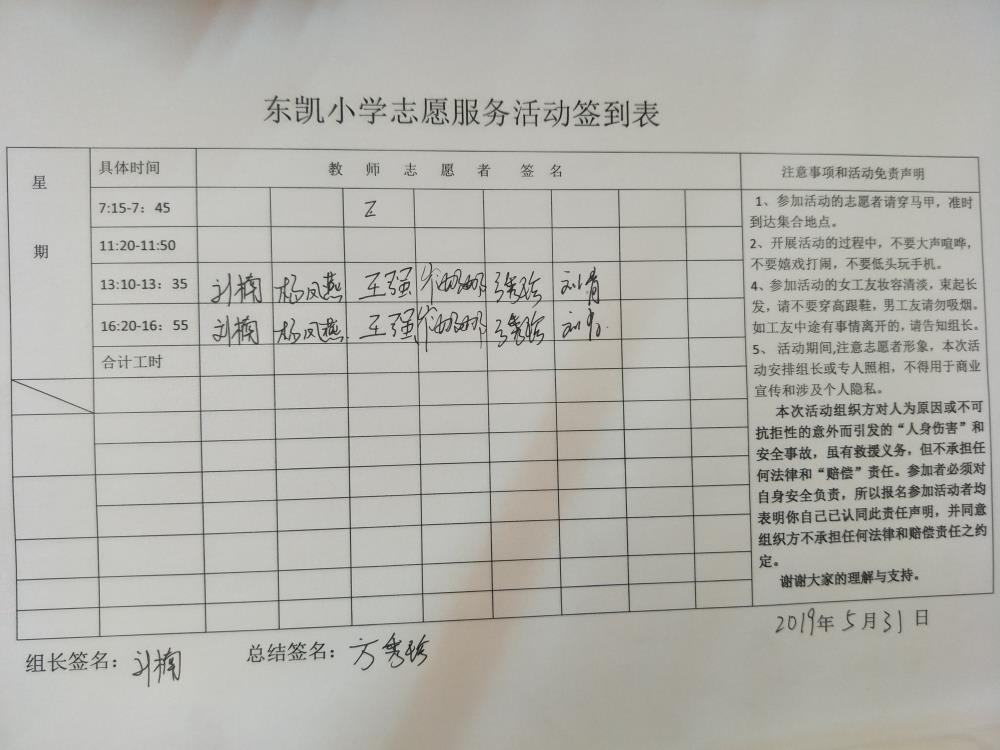 东凯小学志愿服务活动签到表
星期
具体时间
教师志愿者签名
注意事项和活动免责声明
7:15-7：45
11:20-11:50
13:10-13：35 刘楠 杨凤燕 王强 刘倩
16:20-16：55 刘楠 杨凤燕 王强
合计工时
1、参加活动的志愿者请穿马甲，准时
到达集合地点。
2、开展活动的过程中，不要大声喧哗，
不要嬉戏打闹，不要低头玩手机。
4、参加活动的女工友妆容清淡，束起长
发，请不要穿高跟鞋，男工友请勿吸烟。
如工友中途有事情离开的，请告知组长。
5、 活动期间,注意志愿者形象，本次活
动安排组长或专人照相，不得用于商业
宣传和涉及个人隐私。
本次活动组织方对人为原因或不可
抗拒性的意外而引发的“人身伤害”和
安全事故，虽有救援义务，但不承担任
何法律和“赔偿”责任。参加者必须对
自身安全负责，所以报名参加活动者均
表明你自己已认同此责任声明，并同意
组织方不承担任何法律和赔偿责任之约
定。
谢谢大家的理解与支持。
2019年5月31日
组长签名：刘楠
总结签名：方秀珍